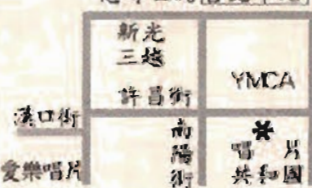 新光
三越
YMCA
許昌街
漢口街
南陽街
＊
唱片
共和國
愛樂唱片